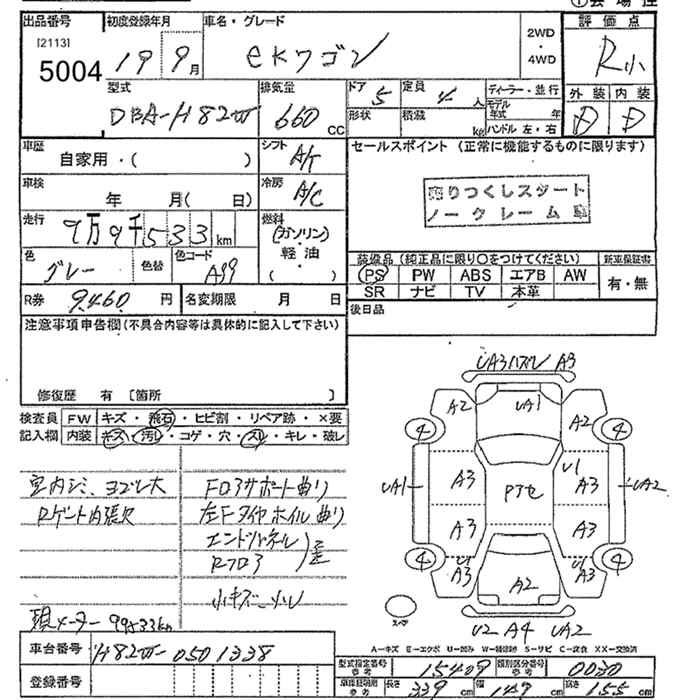 ①会場控
出品番号 初度登録年月 車名・グレード 評価点
[2113] 5004 19 9月 eKワゴン 2WD・4WD R小
型式 排気量 ドア 定員 ディーラー・並行 外装 内装
DBA-H82W 660 CC 5 4人 モデル年式 年 D D
形状 積載 kg ハンドル 左・右
車歴 自家用・( ) シフト A/T セールスポイント (正常に機能するものに限ります)
車検 年 月( 日) 冷房 A/C
売りつくしスタート
ノークレーム
走行 9万9千533km 燃料 (ガソリン)・軽油・( )
色 グレー 色替 色コード A99
装備品 (純正品に限り○をつけてください) 新車保証書
PS PW ABS エアB AW 有・無
SR ナビ TV 本革
R券 9,460 円 名変期限 月 日
後日品
注意事項申告欄 (不具合内容等は具体的に記入して下さい)
修復歴 有 [箇所 ]
検査員 FW キズ・飛石・ヒビ割・リペア跡・×要
記入欄 内装 キズ・汚レ・コゲ・穴・スレ・キレ・破レ
UA3 ハズレ A3
A2 UA1 A2
4 4
UA1 A3 Pアセ U1 A3 UA2
A3 A3
4 4
U1 A3 A2 U1 A3
スペア
U2 A4 UA2
室内シミ、ヨゴレ大 Fロアサポート曲り
Rゲート内張欠 左Fタイヤホイル曲り
エンドパネル
Rフロア
歪
小キズ・凹レ
現メーター 99533km
A-キズ E-エクボ U-凹み W-補修跡 S-サビ C-腐食 XX-交換済
車台番号 H82W-0501338
登録番号
型式指定番号 参考 15409 類別区分番号 参考 0030
車検証期間 参考 長さ 339 cm 幅 147 cm 高さ 155 cm